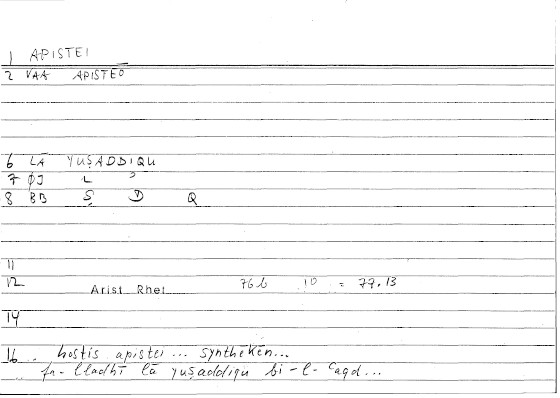 1 APISTEI
2 VAA APISTEŌ
6 LĀ YUṢADDIQU
7 ØJ L ʾ
8 BB Ṣ D Q
11
12 Arist Rhet 76b 10 = 77.13
14
16 .. hostis apistei ... synthēkēn...
fa-lladhī lā yuṣaddiqu bi-l-ʿaqd...